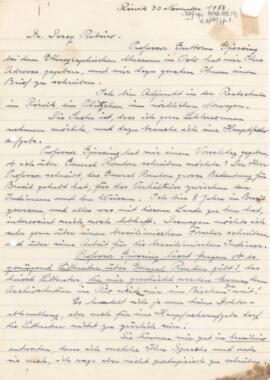 Rörvik 30 November 1958.
Dr. Darcy Ribeiro.
Professor Guttorm Gjessing
bei dem Ethnographischen Museum in Oslo hat mir Ihre
Adresse gegeben, und mir dazu geraten Ihnen einen
Brief zu schreiben.
Ich bin Adjunkt in der Realschule
in Rörvik ein Plätzchen im nördlichen Norwegen.
Die Sache ist, dass ich gern
nehmen möchte, und dazu brauche ich eine Hauptfach-
aufgabe.
Professor Gjessing hat mir einen Vorschlag gegeben
ob ich über General Rondon schreiben möchte? Der Herr
Professor schreibt, das General Rondon grosse Bedeutung für
Brasil gehabt hat, für das Verhältniss zwischen den
Indianern und den Weissen. Ich bin 8 Jahre in Brasil
gewesen, und alles was dieses Landes
interessiert mich noch lebhaft. Deswegen möchte ich
sehr gern über einen brasilianischen Forscher schreiben
und über eine Arbeit für die brasilianischen Indianer.
Professor Gjessing lässt fragen ob es
genügend Litteratur über General Rondon gibt?
Litteratur, die mir geschickt werden könnte,
in Rio
Es handelt sich ja um keine Doktor-
abhandlung, aber auch für eine Hauptfachaufgabe darf
die Litteratur nicht zu
Sie können mir gut in brasiliano
antworten, denn ich verstehe Ihre Sprache und rede
sie auch, ich wage aber nicht portugiesisch zu schreiben,